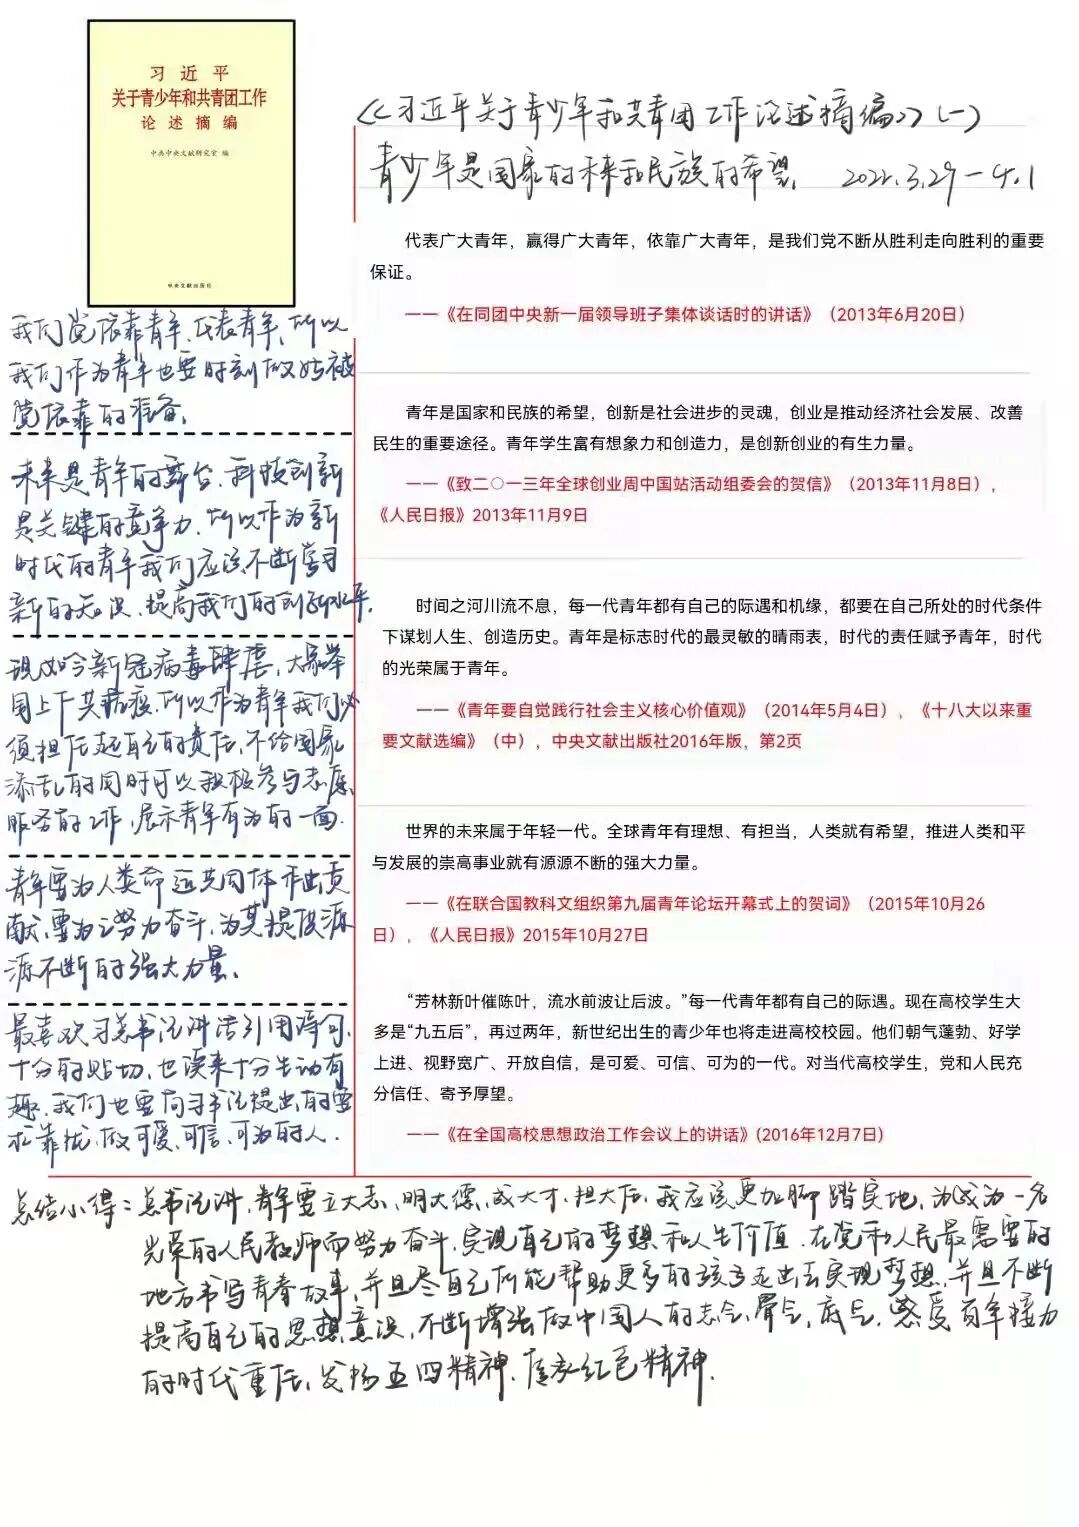 习近平
关于青少年和共青团工作
论述摘编
中共中央文献研究室 编
中央文献出版社
《习近平关于青少年和共青团工作论述摘编》(一)
青少年是国家的未来和民族的希望. 2022.3.29—4.1
代表广大青年，赢得广大青年，依靠广大青年，是我们党不断从胜利走向胜利的重要
保证。
——《在同团中央新一届领导班子集体谈话时的讲话》（2013年6月20日）
我们党依靠青年、代表青年，所以
我们作为青年也要时刻做好被
党依靠的准备。
青年是国家和民族的希望，创新是社会进步的灵魂，创业是推动经济社会发展、改善
民生的重要途径。青年学生富有想象力和创造力，是创新创业的有生力量。
——《致二〇一三年全球创业周中国站活动组委会的贺信》（2013年11月8日），
《人民日报》2013年11月9日
未来是青年的舞台，科技创新
是关键的竞争力，所以作为新
时代的青年我们应该不断学习
新的知识，提高我们的创新水平.
时间之河川流不息，每一代青年都有自己的际遇和机缘，都要在自己所处的时代条件
下谋划人生、创造历史。青年是标志时代的最灵敏的晴雨表，时代的责任赋予青年，时代
的光荣属于青年。
——《青年要自觉践行社会主义核心价值观》（2014年5月4日），《十八大以来重
要文献选编》（中），中央文献出版社2016年版，第2页
现如今新冠病毒肆虐，大家举
国上下共抗疫，所以作为青年我们必
须担任起自己的责任，不给国家
添乱的同时可以积极参与志愿
服务的工作，展示青年有为的一面.
世界的未来属于年轻一代。全球青年有理想、有担当，人类就有希望，推进人类和平
与发展的崇高事业就有源源不断的强大力量。
——《在联合国教科文组织第九届青年论坛开幕式上的贺词》（2015年10月26
日），《人民日报》2015年10月27日
青年要为人类命运共同体作出贡
献，要为之努力奋斗，为其提供源
源不断的强大力量。
“芳林新叶催陈叶，流水前波让后波。”每一代青年都有自己的际遇。现在高校学生大
多是“九五后”，再过两年，新世纪出生的青少年也将走进高校校园。他们朝气蓬勃、好学
上进、视野宽广、开放自信，是可爱、可信、可为的一代。对当代高校学生，党和人民充
分信任、寄予厚望。
——《在全国高校思想政治工作会议上的讲话》(2016年12月7日)
最喜欢习总书记讲话引用诗句，
十分的贴切，也读来十分生动有
趣，我们也要向习书记提出的要
求靠拢，做可爱、可信、可为的人.
总结心得：总书记讲，青年要立大志、明大德、成大才、担大任，我应该更加脚踏实地，为成为一名
光荣的人民教师而努力奋斗，实现自己的梦想和人生价值，在党和人民最需要的
地方书写青春故事，并且尽自己所能帮助更多的孩子走出去实现梦想，并且不断
提高自己的思想意识，不断增强做中国人的志气，骨气，底气，感受百年接力
的时代重任，发扬五四精神，红色精神.